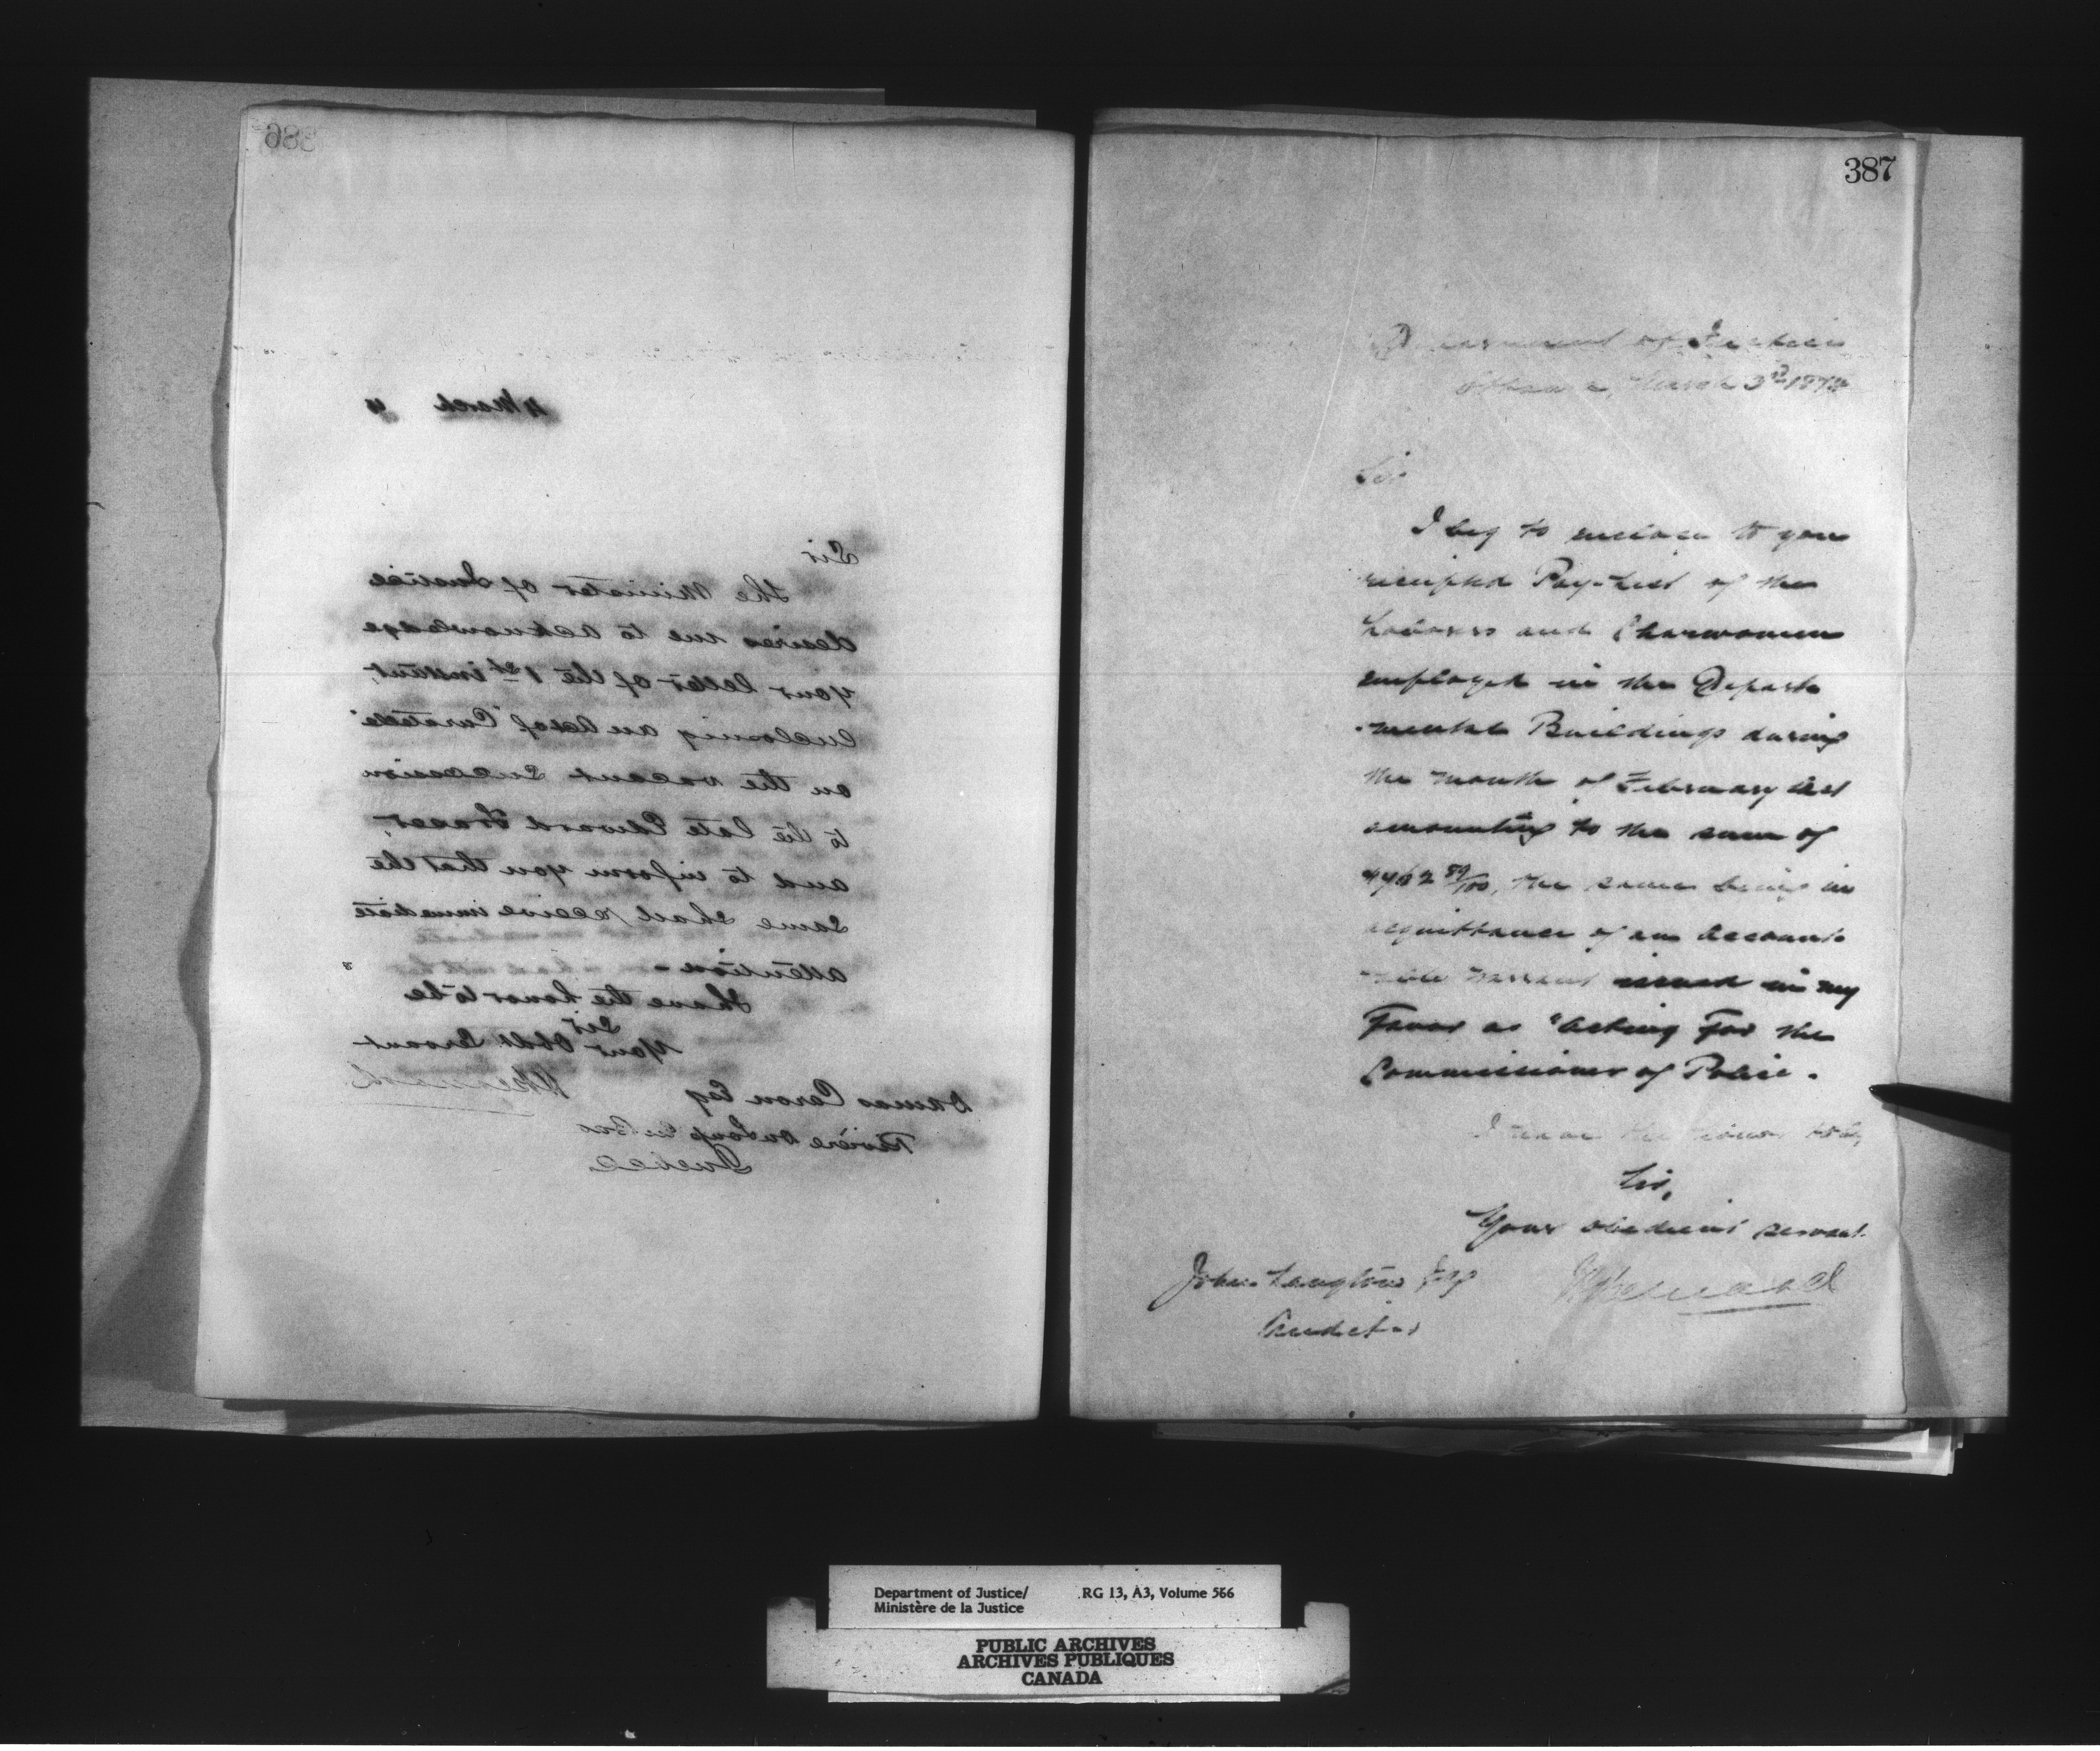 386
4 March
Sir
The Minister of Justice
desires me to acknowledge
your letter of the 1st instant,
enclosing an Act of "Curatelle"
on the vacant succession
to the late Edward Fraser,
and to inform you that the
same shall receive immediate
attention -
I have the honor to be
Sir
Your Obdt Servant
Damas Caron Esq
Rivière du Loup En Bas
Quebec
387
Department of Justice
Ottawa, March 3rd
Sir
I beg to enclose to you
receipted Pay-List of the
Laborers and Charwomen
employed in the Depart
-mental Buildings during
the month of February last
amounting to the sum of
the same being in
acquittance of an account-
able warrant issued in my
Favor as "Acting For the
Commissioner of Police.
I have the honor to be,
Sir,
Your obedient servant.
John Langton Esq
Auditor
Department of Justice/ RG 13, A3, Volume 566
Ministère de la Justice
PUBLIC ARCHIVES
ARCHIVES PUBLIQUES
CANADA